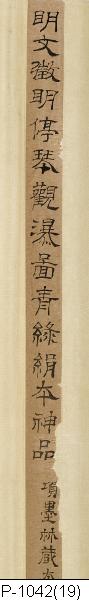 明文徵明停琴觀瀑啚青綠絹夲神品
項墨林藏夲
P-1042(19)